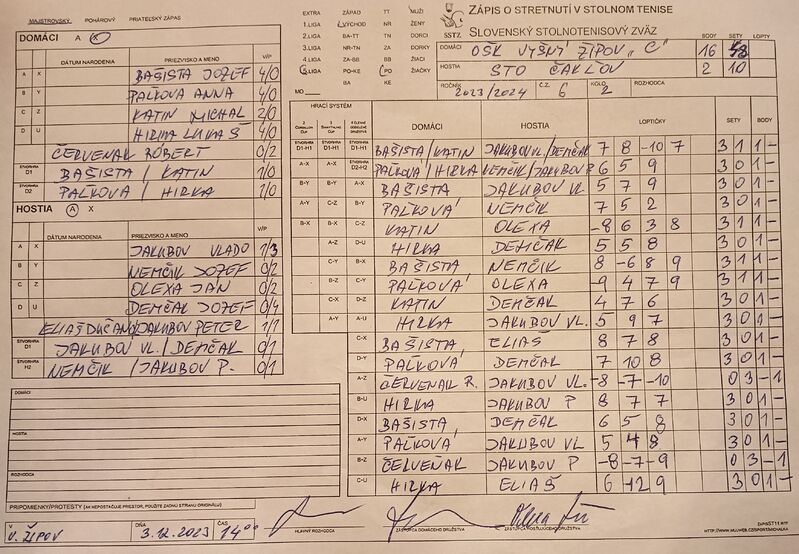 MAJSTROVSKÝ POHÁROVÝ PRIATEĽSKÝ ZÁPAS
DOMÁCI A X
DÁTUM NARODENIA PRIEZVISKO A MENO V/P
A X BAŠISTA JOZEF 4/0
B Y PAĽKOVÁ ANNA 4/0
C Z KATIN MICHAL 2/0
D U HIRKA LUKÁŠ 4/0
ČERVEŇÁK RÓBERT 0/2
ŠTVORHRA D1 BAŠISTA / KATIN 1/0
ŠTVORHRA D2 PAĽKOVÁ / HIRKA 1/0
HOSTIA A X
DÁTUM NARODENIA PRIEZVISKO A MENO V/P
A X JAKUBOV VLADO 1/3
B Y NEMČÍK JOZEF 0/2
C Z OLEXA JÁN 0/2
D U DEMČÁK JOZEF 0/4
JAKUBOV PETER 1/1
ŠTVORHRA D1 JAKUBOV VL. / DEMČÁK 0/1
ŠTVORHRA H2 NEMČÍK / JAKUBOV P. 0/1
DOMÁCI
HOSTIA
ROZHODCA
PRIPOMIENKY/PROTESTY (AK NEPOSTAČUJE PRIESTOR, POUŽITE ZADNÚ STRANU ORIGINÁLU)
V V. ŽIPOV DŇA 3.12.2023 ČAS 14⁰⁰
HLAVNÝ ROZHODCA
ZÁSTUPCA DOMÁCEHO DRUŽSTVA
ZÁSTUPCA HOSŤUJÚCEHO DRUŽSTVA
EXTRA ZÁPAD TT MUŽI
1.LIGA VÝCHOD NR ŽENY
2.LIGA BA-TT TN DORCI
3.LIGA NR-TN ZA DORKY
4.LIGA ZA-BB BB ŽIACI
5.LIGA PO-KE PO ŽIAČKY
MO BA KE
SSTZ
ZÁPIS O STRETNUTÍ V STOLNOM TENISE
SLOVENSKÝ STOLNOTENISOVÝ ZVÄZ
BODY SETY LOPTY
DOMÁCI OŠK VYŠNÝ ŽIPOV „C" 16 48
HOSTIA STO ČAKĽOV 2 10
ROČNÍK 2023/2024 Č.Z. 6 KOLO 2 ROZHODCA
HRACÍ SYSTÉM
DOMÁCI HOSTIA LOPTIČKY SETY BODY
ŠTVORHRA D1-H1 ŠTVORHRA D1-H1 ŠTVORHRA D1-H1 BAŠISTA / KATIN JAKUBOV VL. / DEMČÁK 7 8 -10 7 3 1 1 -
A-X A-X ŠTVORHRA D2-H2 PAĽKOVÁ / HIRKA NEMČÍK / JAKUBOV P 6 5 9 3 0 1 -
B-Y B-Y A-X BAŠISTA JAKUBOV VL 5 7 9 3 0 1 -
A-Y C-Z B-Y PAĽKOVÁ NEMČÍK 7 5 2 3 0 1 -
B-X B-X C-Z KATIN OLEXA -8 6 3 8 3 1 1 -
A-Z D-U HIRKA DEMČÁK 5 5 8 3 0 1 -
C-Y B-X BAŠISTA NEMČÍK 8 -6 8 9 3 1 1 -
B-Z C-Y PAĽKOVÁ OLEXA -9 4 7 9 3 1 1 -
C-X D-Z KATIN DEMČÁK 4 7 6 3 0 1 -
A-Y A-U HIRKA JAKUBOV VL. 5 9 7 3 0 1 -
C-X BAŠISTA ELIÁŠ 8 7 8 3 0 1 -
D-Y PAĽKOVÁ DEMČÁK 7 10 8 3 0 1 -
A-Z ČERVEŇÁK R. JAKUBOV VL. -8 -7 -10 0 3 - 1
B-U HIRKA JAKUBOV P 8 7 7 3 0 1 -
D-X BAŠISTA DEMČÁK 6 5 8 3 0 1 -
A-Y PAĽKOVÁ JAKUBOV VL 5 4 8 3 0 1 -
B-Z ČERVEŇÁK JAKUBOV P -8 -7 -9 0 3 - 1
C-U HIRKA ELIÁŠ 6 12 9 3 0 1 -